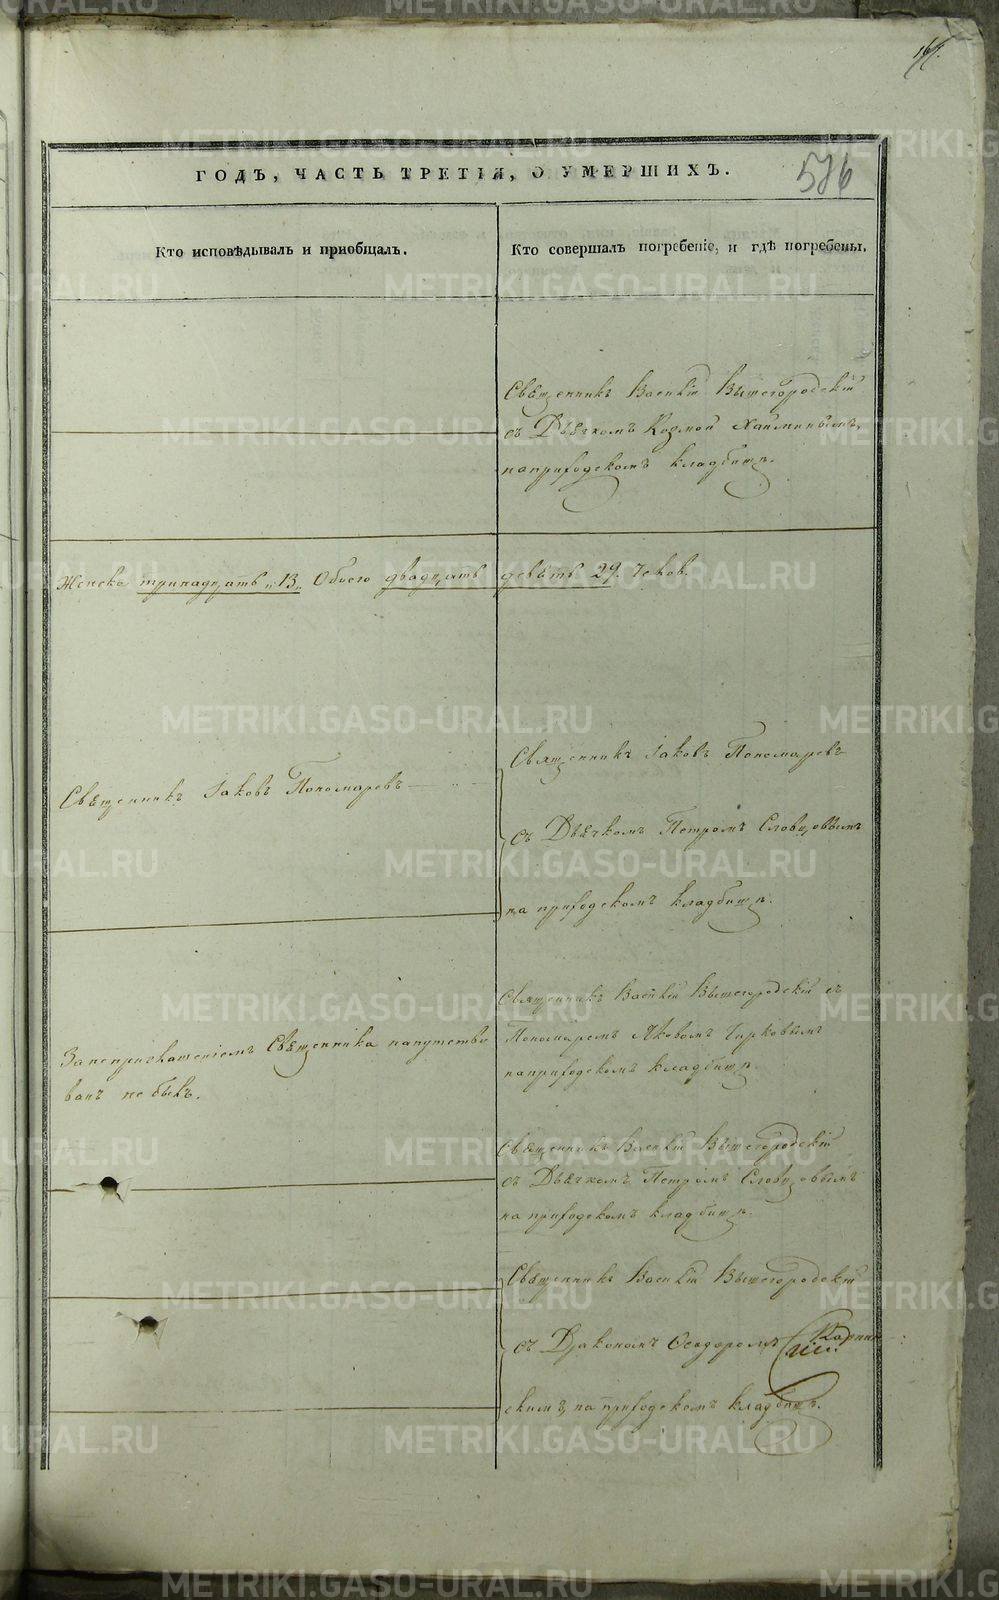 ГОДЪ, ЧАСТЬ ТРЕТІЯ, О УМЕРШИХЪ.
516
Кто исповѣдывалъ и пріобщалъ.
Кто совершалъ погребеніе, и гдѣ погребены.
Священникъ Василій Вышегородскій
съ Дьячкомъ Козмой
на приходскомъ кладбищѣ.
Женска тринадцать „13„ Обоего двадцать девять 29. человѣкъ.
Священникъ Іаковъ Пономаревъ
Священникъ Іаковъ Пономаревъ
съ Дьячкомъ Петромъ Словцовымъ
на приходскомъ кладбищѣ.
За неприглашеніемъ Священника напутство
ванъ не былъ.
Священникъ Василій Вышегородскій съ
Пономаремъ Яковомъ Гирковымъ
на приходскомъ кладбищѣ.
Священникъ Василій Вышегородскій
съ Дьячкомъ Петромъ Словцовымъ
на приходскомъ кладбищѣ.
Священникъ Василій Вышегородскій
съ Діакономъ Ѳеодоромъ Карпин
скимъ, на приходскомъ кладбищѣ.
METRIKI.GASO-URAL.RU